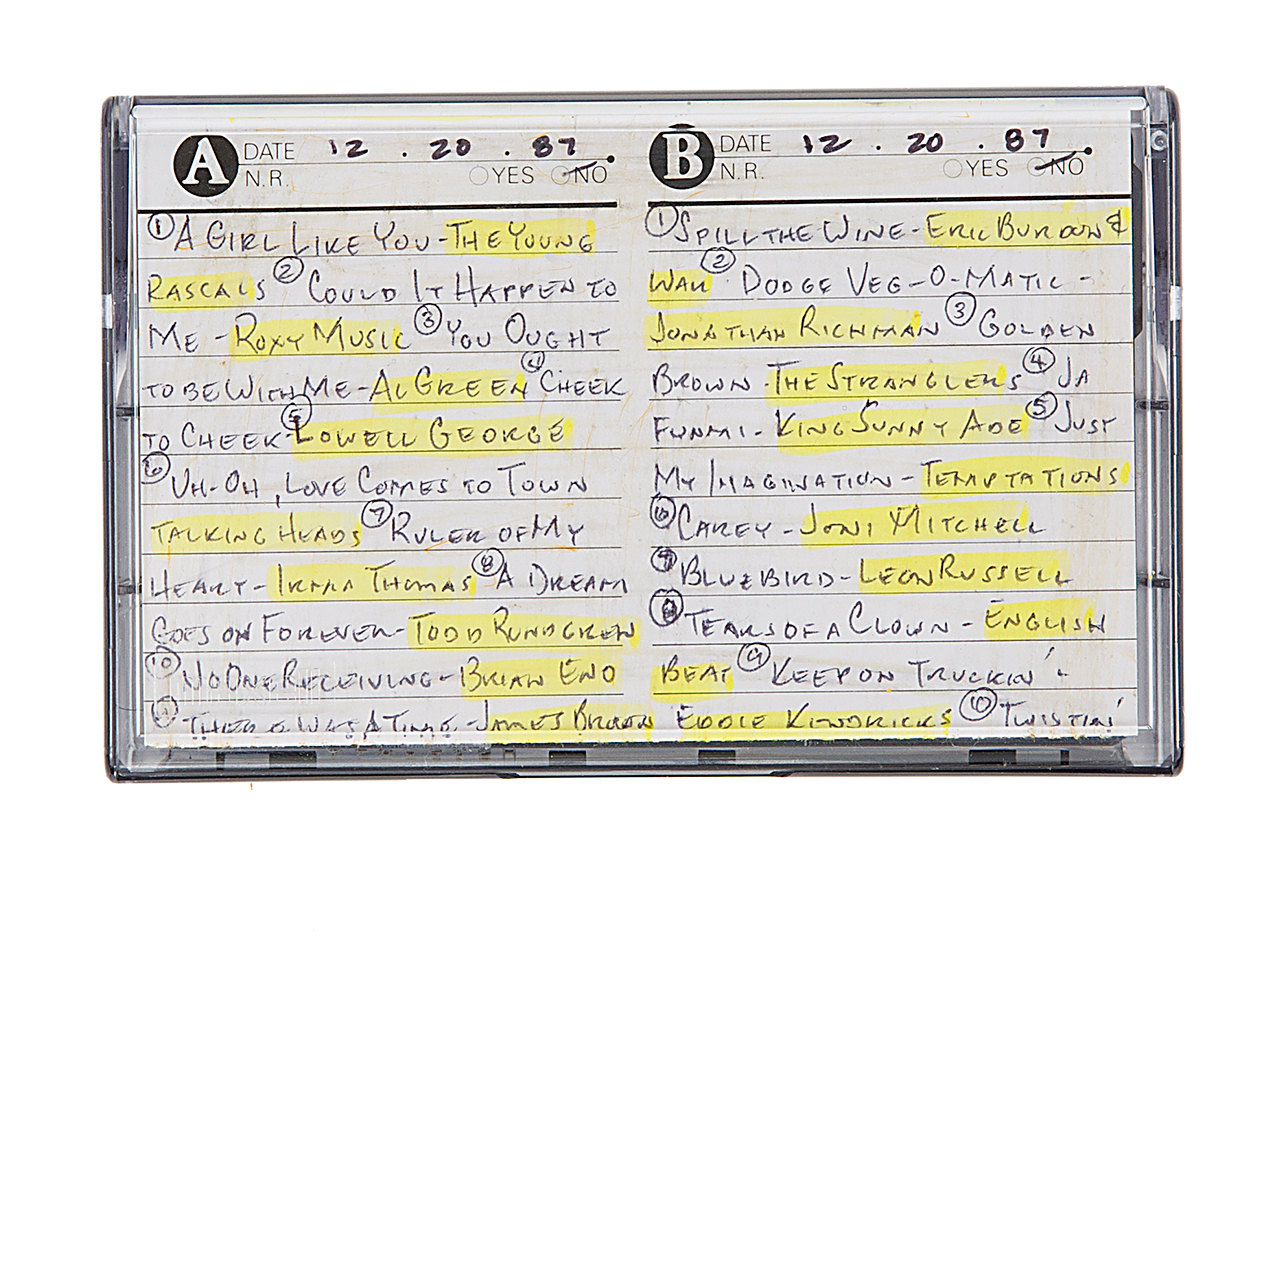 A DATE 12 . 20 . 87
N.R. YES NO
① A GIRL LIKE YOU - THE YOUNG
RASCALS ② COULD IT HAPPEN TO
ME - ROXY MUSIC ③ YOU OUGHT
TO BE WITH ME - AL GREEN ④ CHEEK
TO CHEEK - ⑤ LOWELL GEORGE
⑥ UH-OH, LOVE COMES TO TOWN
TALKING HEADS ⑦ RULER OF MY
HEART - IRMA THOMAS ⑧ A DREAM
GOES ON FOREVER - TODD RUNDGREN
⑩ NO ONE RECEIVING - BRIAN ENO
THERE WAS A TIME - JAMES BROWN
B DATE 12 . 20 . 87
N.R. YES NO
① SPILL THE WINE - ERIC BURDON &
WAR ② DODGE VEG-O-MATIC -
JONATHAN RICHMAN ③ GOLDEN
BROWN - THE STRANGLERS ④ JA
FUNMI - KING SUNNY ADE ⑤ JUST
MY IMAGINATION - TEMPTATIONS
⑥ CAREY - JONI MITCHELL
⑦ BLUEBIRD - LEON RUSSELL
⑧ TEARS OF A CLOWN - ENGLISH
BEAT ⑨ KEEP ON TRUCKIN' -
EDDIE KENDRICKS ⑩ TWISTIN'